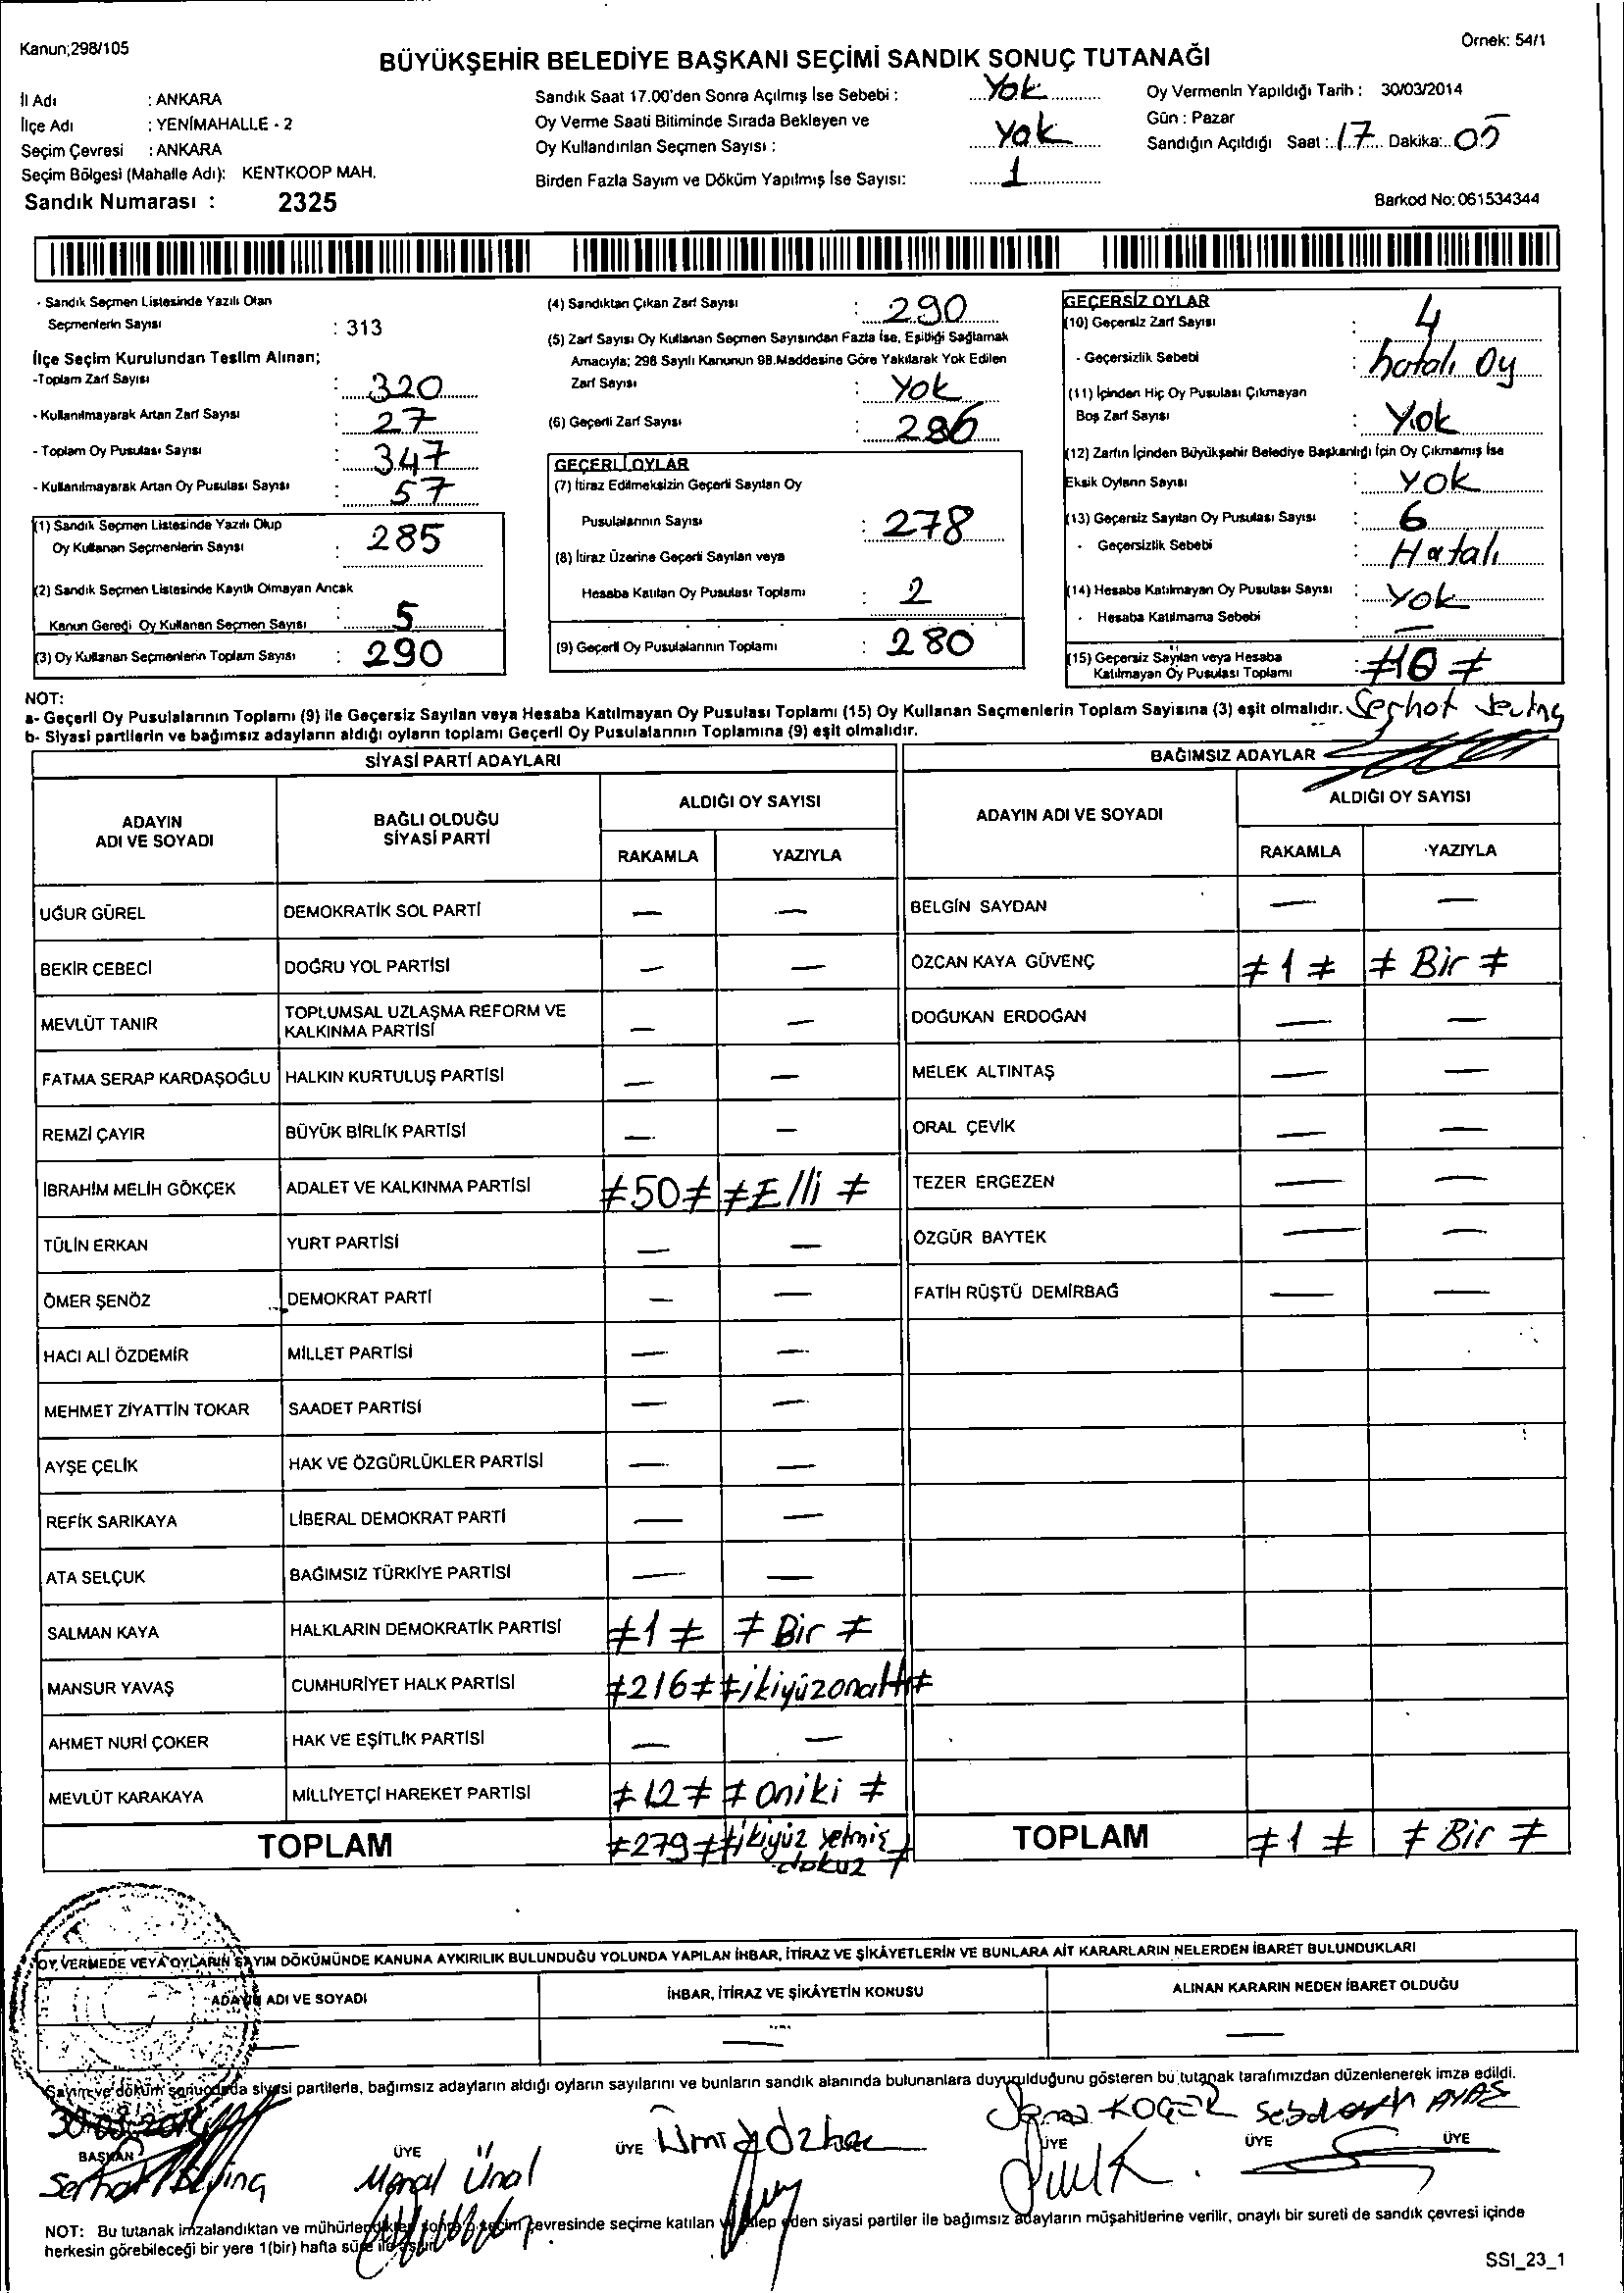 Kanun;298/105
Örnek: 54/1
BÜYÜKŞEHİR BELEDİYE BAŞKANI SEÇİMİ SANDIK SONUÇ TUTANAĞI
İl Adı : ANKARA
İlçe Adı : YENİMAHALLE - 2
Seçim Çevresi : ANKARA
Seçim Bölgesi (Mahalle Adı): KENTKOOP MAH.
Sandık Numarası : 2325
Sandık Saat 17.00'den Sonra Açılmış İse Sebebi : Yok
Oy Verme Saati Bitiminde Sırada Bekleyen ve
Oy Kullandırılan Seçmen Sayısı : Yok
Birden Fazla Sayım ve Döküm Yapılmış İse Sayısı: 1
Oy Vermenin Yapıldığı Tarih : 30/03/2014
Gün : Pazar
Sandığın Açıldığı Saat : 17 Dakika: 05
Barkod No: 061534344
- Sandık Seçmen Listesinde Yazılı Olan
Seçmenlerin Sayısı : 313
İlçe Seçim Kurulundan Teslim Alınan;
-Toplam Zarf Sayısı : 320
- Kullanılmayarak Artan Zarf Sayısı : 27
- Toplam Oy Pusulası Sayısı : 347
- Kullanılmayarak Artan Oy Pusulası Sayısı : 57
(1) Sandık Seçmen Listesinde Yazılı Olup
Oy Kullanan Seçmenlerin Sayısı : 285
(2) Sandık Seçmen Listesinde Kayıtlı Olmayan Ancak
Kanun Gereği Oy Kullanan Seçmen Sayısı : 5
(3) Oy Kullanan Seçmenlerin Toplam Sayısı : 290
(4) Sandıktan Çıkan Zarf Sayısı : 290
(5) Zarf Sayısı Oy Kullanan Seçmen Sayısından Fazla İse, Eşitliği Sağlamak
Amacıyla; 298 Sayılı Kanunun 98.Maddesine Göre Yakılarak Yok Edilen
Zarf Sayısı : Yok
(6) Geçerli Zarf Sayısı : 286
GEÇERLİ OYLAR
(7) İtiraz Edilmeksizin Geçerli Sayılan Oy
Pusulalarının Sayısı : 278
(8) İtiraz Üzerine Geçerli Sayılan veya
Hesaba Katılan Oy Pusulası Toplamı : 2
(9) Geçerli Oy Pusulalarının Toplamı : 280
GEÇERSİZ OYLAR
(10) Geçersiz Zarf Sayısı : 4
- Geçersizlik Sebebi : hatalı Oy
(11) İçinden Hiç Oy Pusulası Çıkmayan
Boş Zarf Sayısı : Yok
(12) Zarfın İçinden Büyükşehir Belediye Başkanlığı İçin Oy Çıkmamış İse
Eksik Oyların Sayısı : YOK
(13) Geçersiz Sayılan Oy Pusulası Sayısı : 6
- Geçersizlik Sebebi : Hatalı
(14) Hesaba Katılmayan Oy Pusulası Sayısı : Yok
- Hesaba Katılmama Sebebi : —
(15) Geçersiz Sayılan veya Hesaba
Katılmayan Oy Pusulası Toplamı : ≠10≠
NOT:
a- Geçerli Oy Pusulalarının Toplamı (9) ile Geçersiz Sayılan veya Hesaba Katılmayan Oy Pusulası Toplamı (15) Oy Kullanan Seçmenlerin Toplam Sayısına (3) eşit olmalıdır. Serhat
b- Siyasi partilerin ve bağımsız adayların aldığı oyların toplamı Geçerli Oy Pusulalarının Toplamına (9) eşit olmalıdır.
SİYASİ PARTİ ADAYLARI
ADAYIN ADI VE SOYADI
BAĞLI OLDUĞU SİYASİ PARTİ
ALDIĞI OY SAYISI
RAKAMLA YAZIYLA
UĞUR GÜREL DEMOKRATİK SOL PARTİ — —
BEKİR CEBECİ DOĞRU YOL PARTİSİ — —
MEVLÜT TANIR TOPLUMSAL UZLAŞMA REFORM VE KALKINMA PARTİSİ — —
FATMA SERAP KARDAŞOĞLU HALKIN KURTULUŞ PARTİSİ — —
REMZİ ÇAYIR BÜYÜK BİRLİK PARTİSİ — —
İBRAHİM MELİH GÖKÇEK ADALET VE KALKINMA PARTİSİ ≠50≠ ≠Elli≠
TÜLİN ERKAN YURT PARTİSİ — —
ÖMER ŞENÖZ DEMOKRAT PARTİ — —
HACI ALİ ÖZDEMİR MİLLET PARTİSİ — —
MEHMET ZİYATTİN TOKAR SAADET PARTİSİ — —
AYŞE ÇELİK HAK VE ÖZGÜRLÜKLER PARTİSİ — —
REFİK SARIKAYA LİBERAL DEMOKRAT PARTİ — —
ATA SELÇUK BAĞIMSIZ TÜRKİYE PARTİSİ — —
SALMAN KAYA HALKLARIN DEMOKRATİK PARTİSİ ≠1≠ ≠Bir≠
MANSUR YAVAŞ CUMHURİYET HALK PARTİSİ ≠216≠ ≠ikiyüzonaltı≠
AHMET NURİ ÇOKER HAK VE EŞİTLİK PARTİSİ — —
MEVLÜT KARAKAYA MİLLİYETÇİ HAREKET PARTİSİ ≠12≠ ≠Oniki≠
TOPLAM ≠279≠ ≠ikiyüz yetmiş dokuz≠
BAĞIMSIZ ADAYLAR
ADAYIN ADI VE SOYADI
ALDIĞI OY SAYISI
RAKAMLA YAZIYLA
BELGİN SAYDAN — —
ÖZCAN KAYA GÜVENÇ ≠1≠ ≠Bir≠
DOĞUKAN ERDOĞAN — —
MELEK ALTINTAŞ — —
ORAL ÇEVİK — —
TEZER ERGEZEN — —
ÖZGÜR BAYTEK — —
FATİH RÜŞTÜ DEMİRBAĞ — —
TOPLAM ≠1≠ ≠Bir≠
OY VERMEDE VEYA OYLARIN SAYIM DÖKÜMÜNDE KANUNA AYKIRILIK BULUNDUĞU YOLUNDA YAPILAN İHBAR, İTİRAZ VE ŞİKÂYETLERİN VE BUNLARA AİT KARARLARIN NELERDEN İBARET BULUNDUKLARI
ADAYIN ADI VE SOYADI İHBAR, İTİRAZ VE ŞİKÂYETİN KONUSU ALINAN KARARIN NEDEN İBARET OLDUĞU
— — —
Sayım ve döküm sonucunda siyasi partilerle, bağımsız adayların aldığı oyların sayılarını ve bunların sandık alanında bulunanlara duyurulduğunu gösteren bu tutanak tarafımızdan düzenlenerek imza edildi.
30.03.2014
BAŞKAN ÜYE ÜYE ÜYE ÜYE ÜYE
Serhat
Meral Ünal
KOÇER
NOT: Bu tutanak imzalandıktan ve mühürlendikten sonra o seçim çevresinde seçime katılan ve talep eden siyasi partiler ile bağımsız adayların müşahitlerine verilir, onaylı bir sureti de sandık çevresi içinde
herkesin görebileceği bir yere 1(bir) hafta süre ile asılır.
SSI_23_1